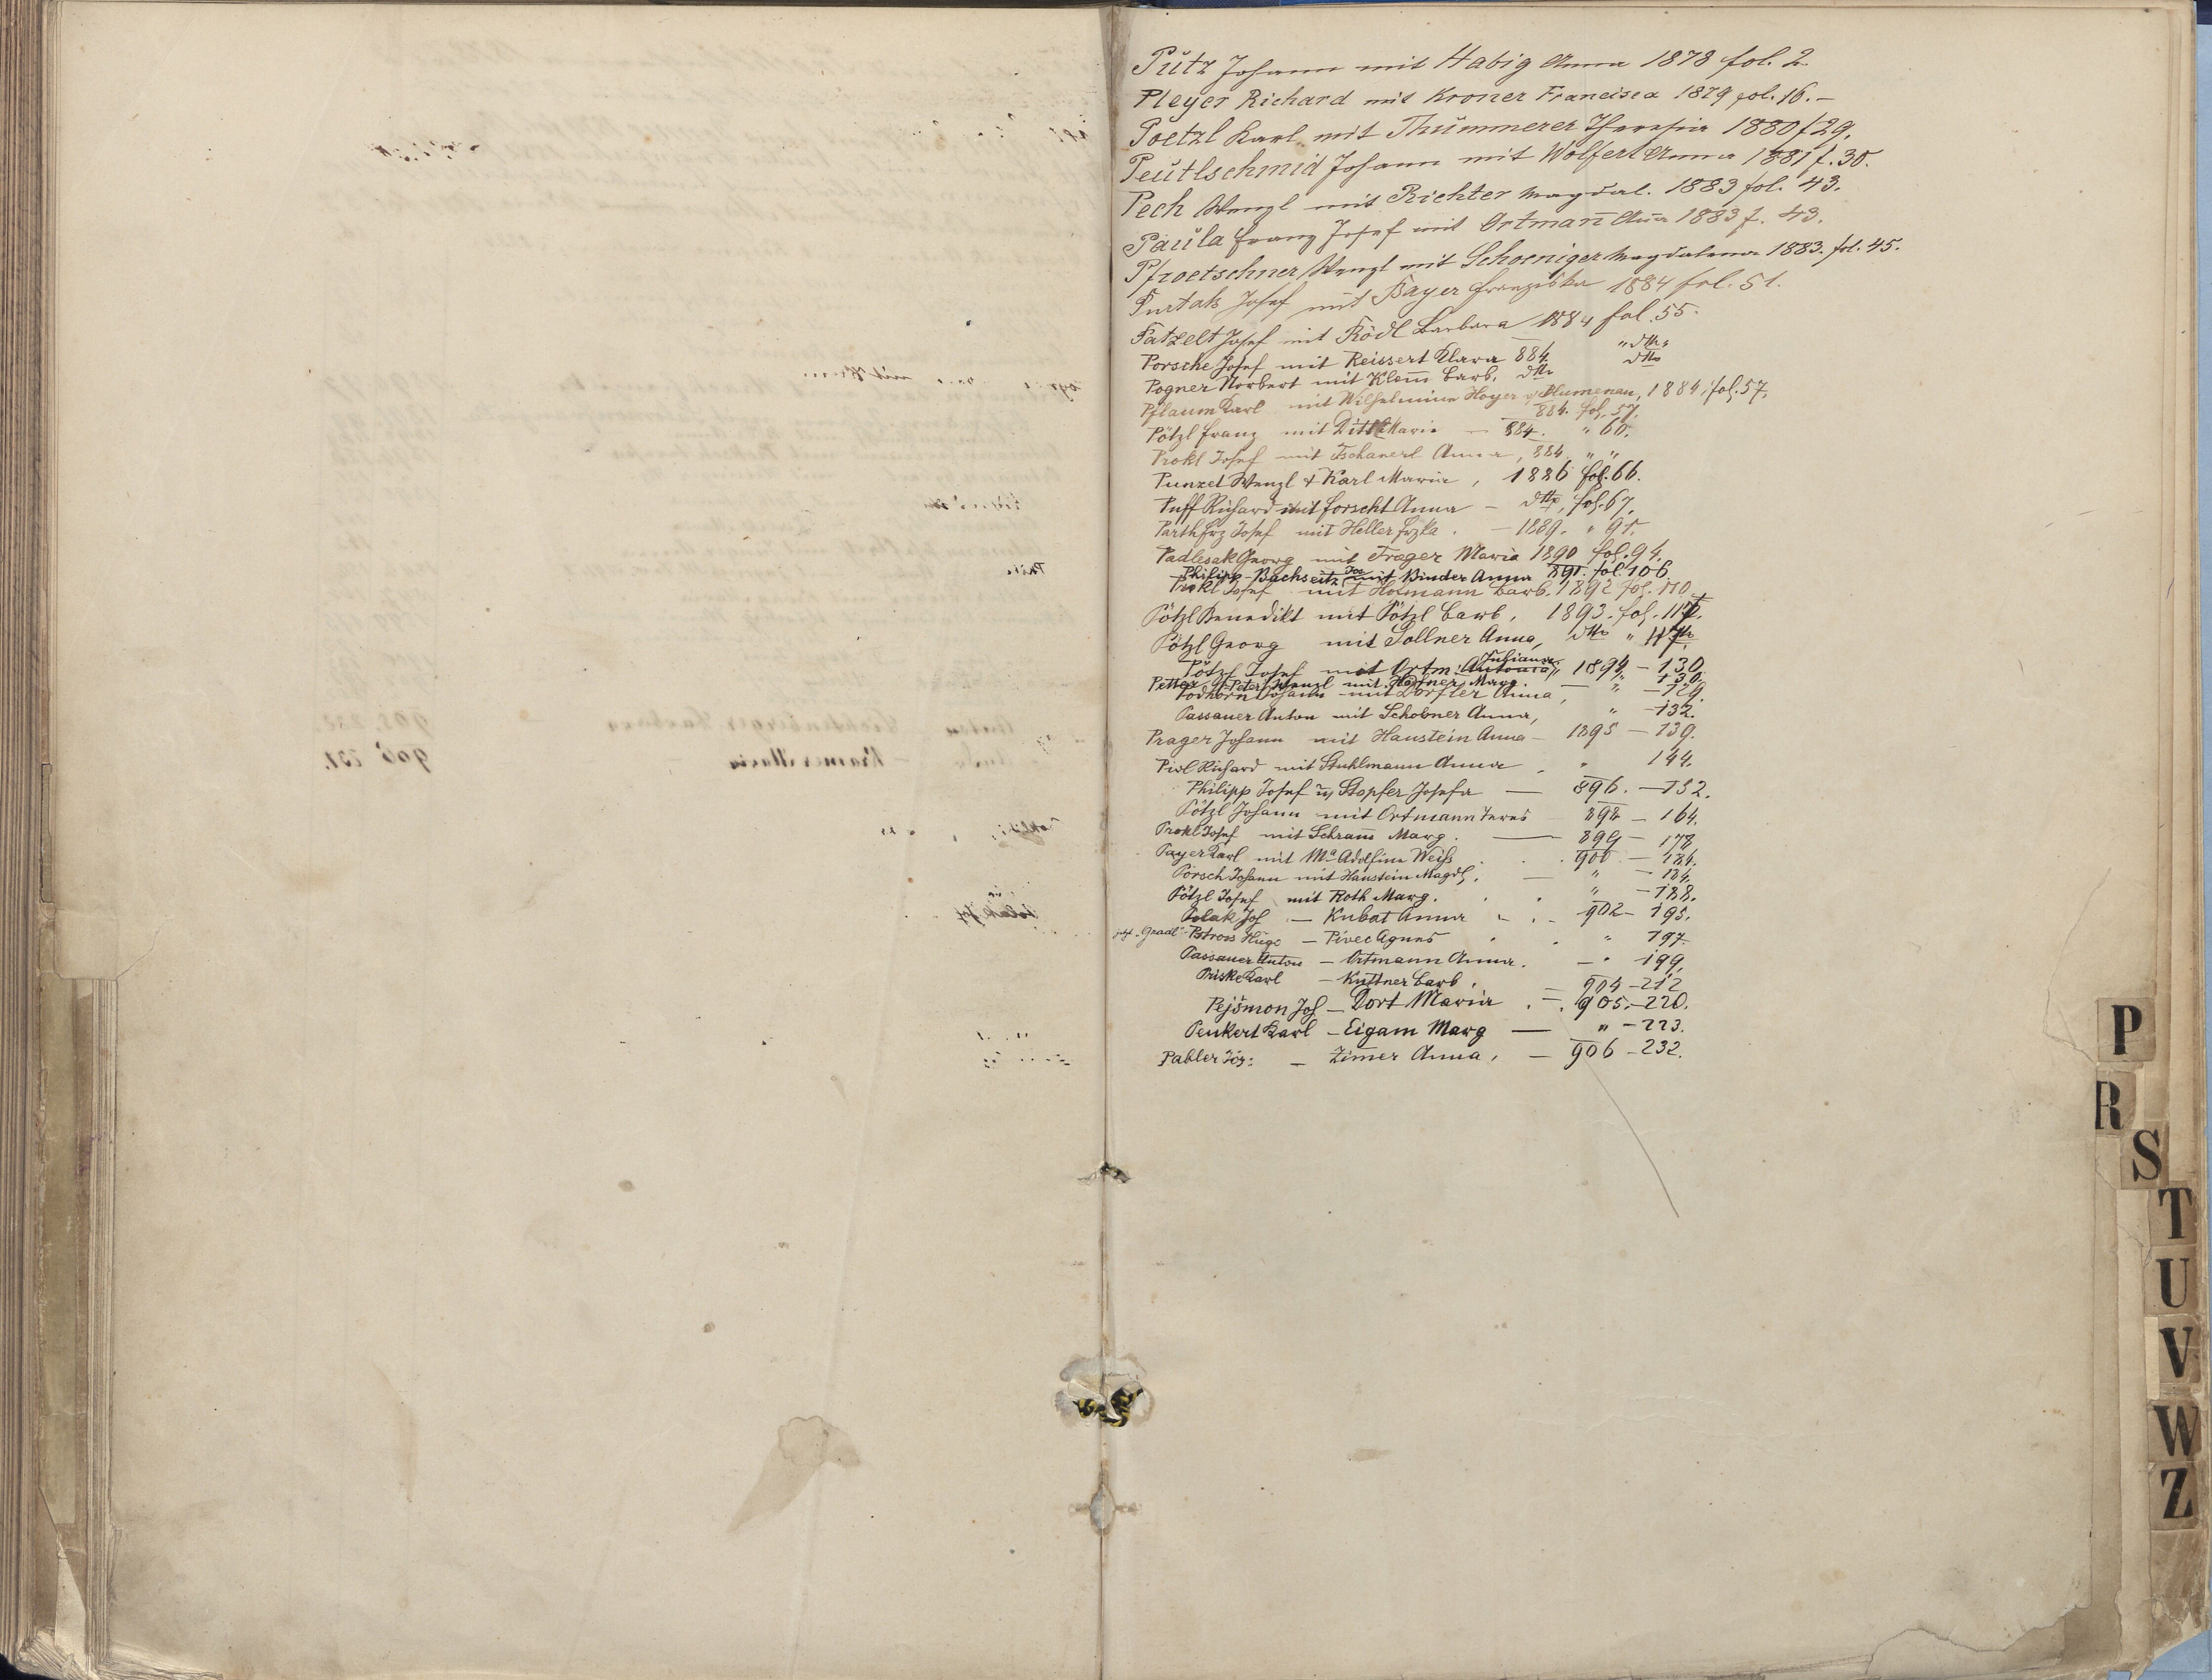 Pütz Johann mit Habig Anna 1878 fol. 2
Pleyer Richard mit Kroner Francisca 1879 fol. 16.–
Poetzl Karl mit Thümmerer Theresia 1880 f 29.
Peütlschmid Johann mit Wolfert Anna 1881 f. 30.
Pech Wenzl mit Richter Magdal. 1883 fol. 43.
Paüla Franz Josef mit Ortman̄ An̄a 1883 f. 43.
Pfroetschner Wenzl mit Schoeniger Magdalena 1883. fol. 45.
Josef mit Bayer Franziska 1884 fol. 51.
Patzelt Josef mit Rödl Barbara 1884 fol. 55.
Porsche Josef mit Reissert Klara 884. " dtto "
Pogner Norbert mit Klem̄ Barb. dtto dtto
Pflaum Karl mit Wilhelmine Hoyer v. Blumenau, 1884, fol. 57.
Pötzl Franz mit Maria — 884. fol. 57.
Prokl Josef mit Tschanerl Anna, 884. " 60.
Punzet Wenzl & Karl Maria, 1886 fol. 66.
Puff Richard mit Forscht Anna – dtto, fol. 67.
Pärth Frz Josef mit Heller Frzka. – 1889. " 91.
Padlesak Georg mit Trager Maria 1890 fol. 94.
Philipp-Bachseitz Jos mit Binder Anna 891. fol. 106
Prokl Josef mit Hofmann Barb. 1892 fol. 110.
Pötzl Benedikt mit Pötzl Barb. 1893. fol. 117.
Pötzl Georg mit Sollner Anna, dtto " 117.
Pötzl Josef mit Ortm: Antonia Juliana 1894 – 130.
Petter Peter Wenzl mit Höffner Marg. — " 130.
Podhorn Johann mit Dörfler Anna, " – 129.
Passauer Anton mit Schobner Anna, " – 132.
Prager Johann mit Haustein Anna – 1895 – 139.
Piol Richard mit Stuhlmann Anna " 144.
Philipp Josef u Stopfer Josefa — 896. – 152.
Pötzl Johann mit Ortmann Teres 898 – 164.
Prokl Josef mit Schram̄ Marg. — 899 – 178
Payer Karl mit Ma Adolfine Weiss . . . 900 – 184.
Pörsch Johann mit Haustein Magdl. — " – 184.
Pötzl Josef mit Roth Marg. . . " – 188.
Polak Jos — Kubat Anna – . – 902 – 195.
jetzt „Gnadl" Pstross Hugo — Pivec Agnes . . " 197.
Passauer Anton — Ortmann Anna. — " 199.
Priske Karl — Küttner Barb. 904 – 212
Pejšmon Jos — Dort Maria . – . 905. – 220.
Penkert Karl – Eigam Marg — " – 223.
Pabler Jos: — Zim̄er Anna, — 906 – 232.
P
R
S
T
U
V
W
Z